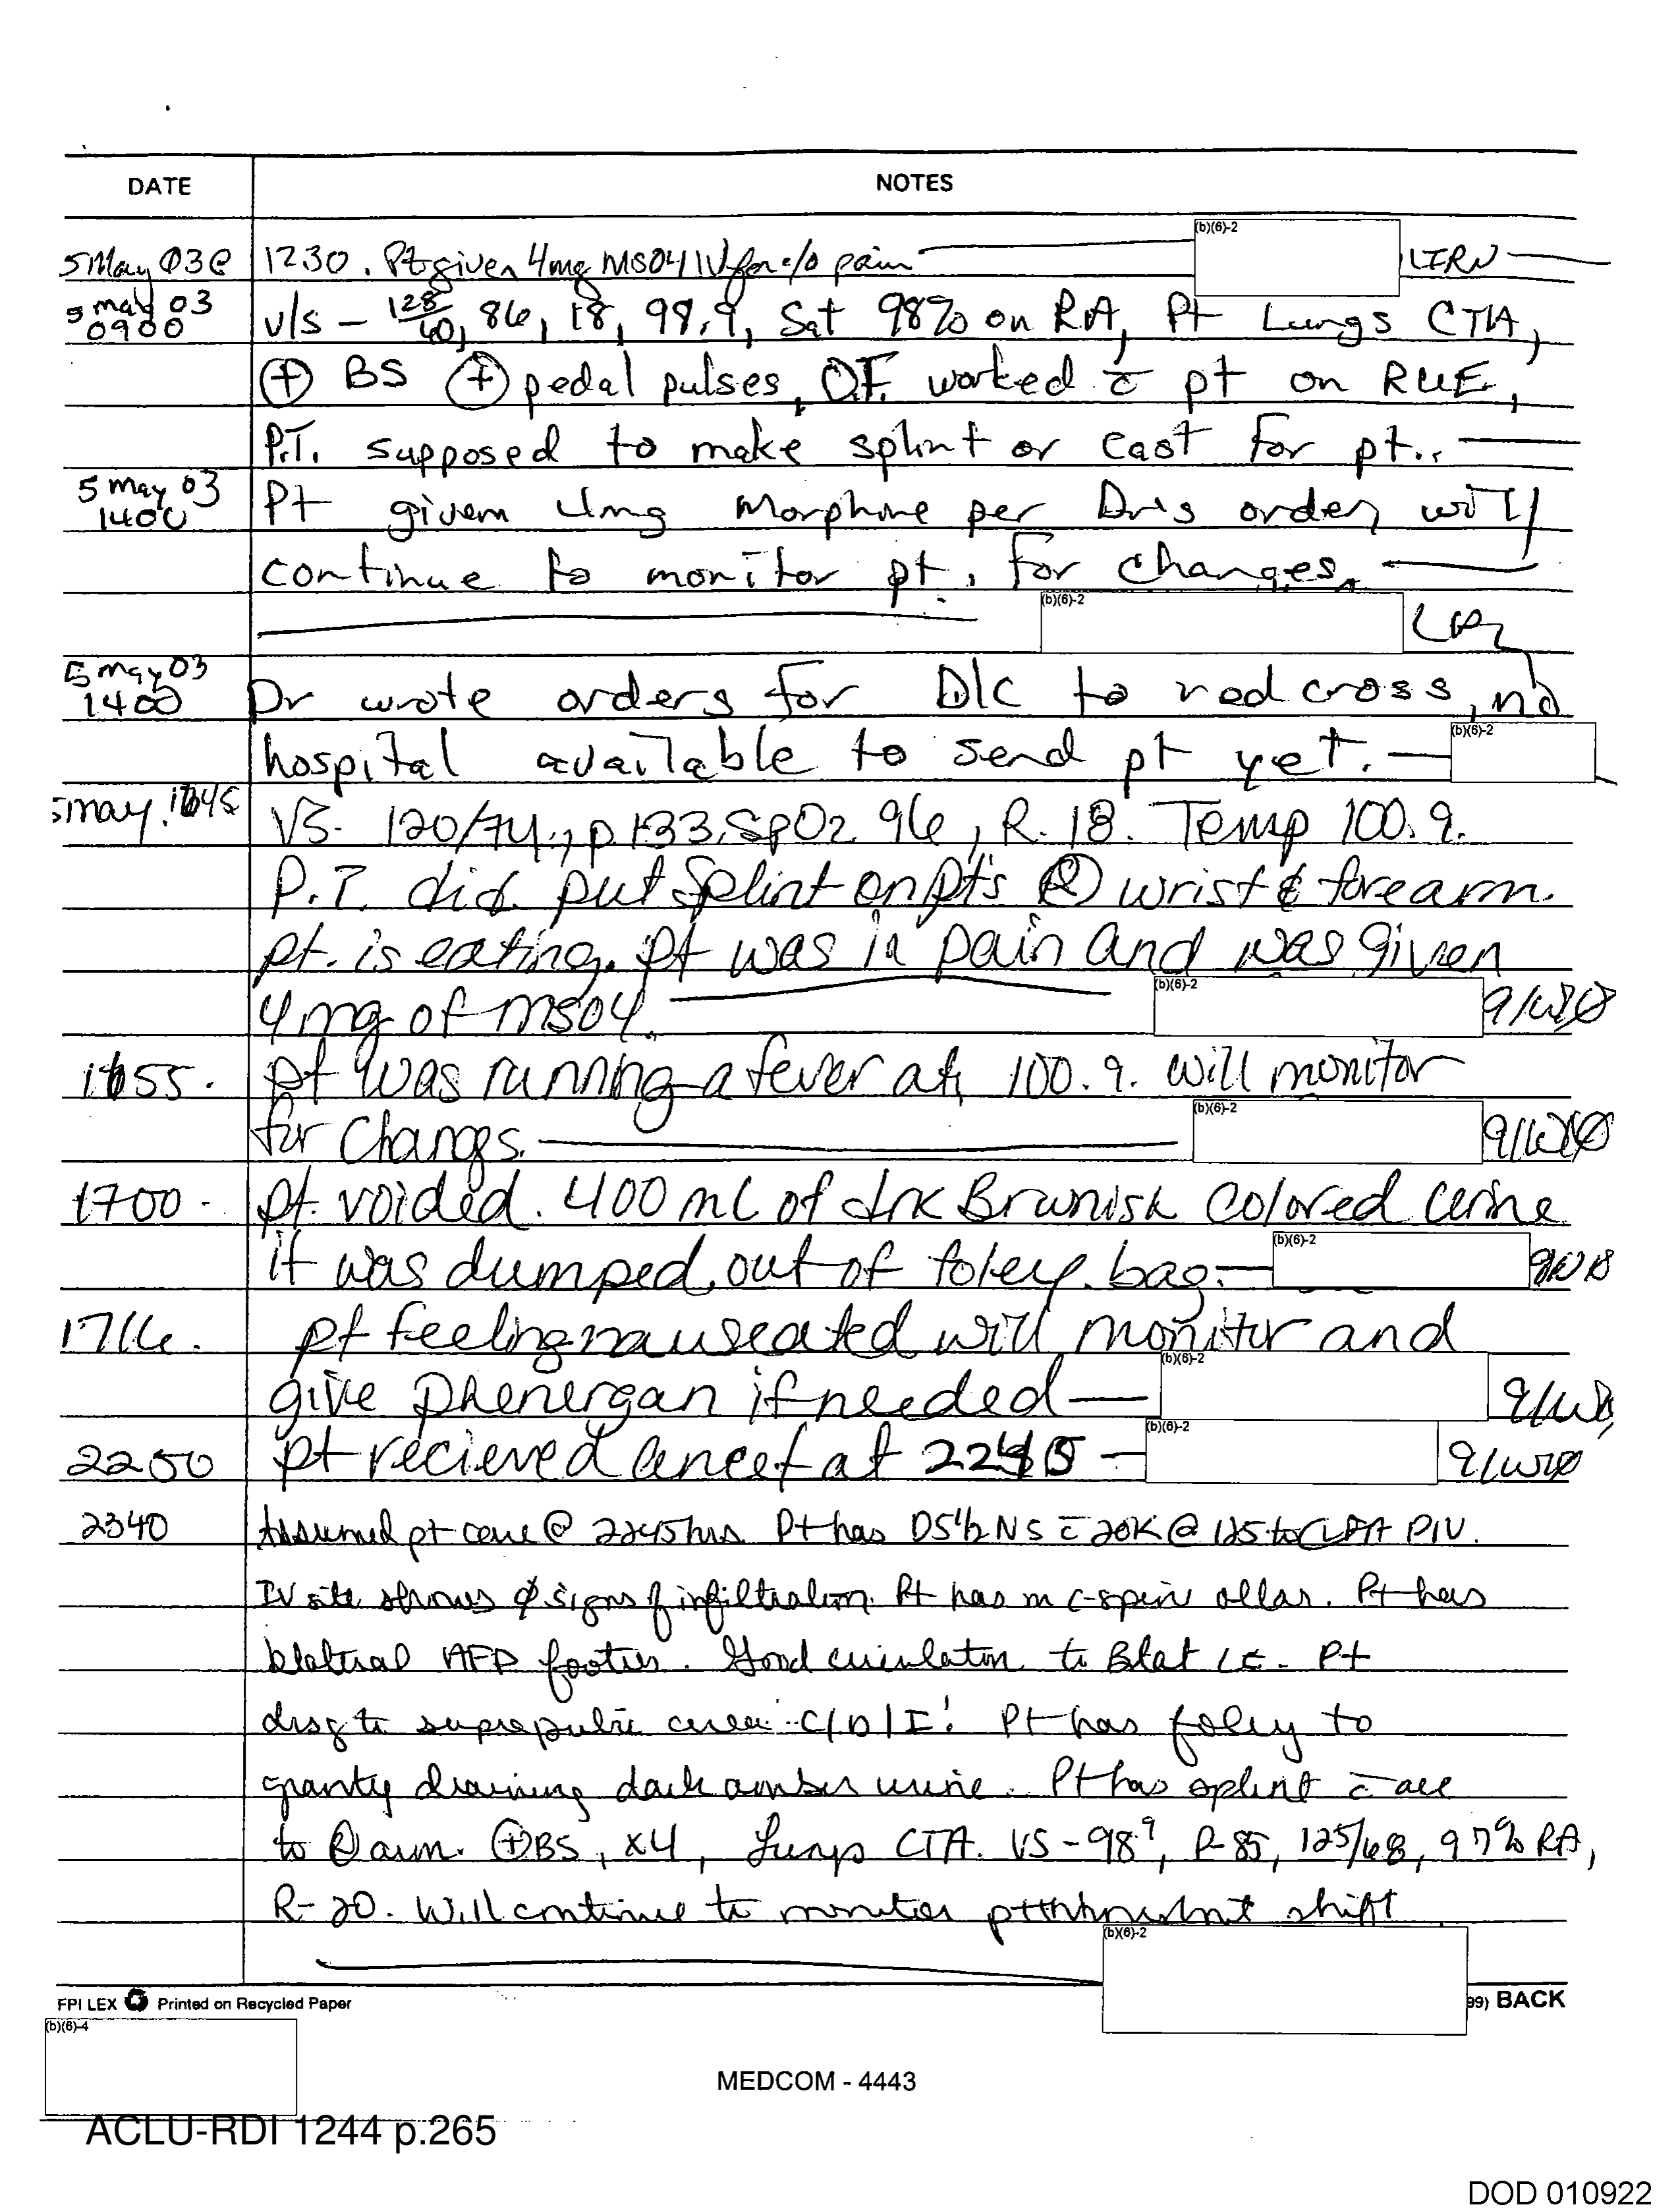 DATE NOTES
5 May 03 @ 1230. Pt given 4mg MSO4 IV for c/o pain (b)(6)-2 LTRN
5 may 03 0900 v/s - 128/60, 86, 18, 98.9, Sat 98% on RA, Pt Lungs CTA,
⊕ BS ⊕ pedal pulses, O.T. worked c̄ pt on RUE,
P.T. supposed to make splint or cast for pt..
5 may 03 1400 Pt given 4mg Morphine per Dr's order, will
continue to monitor pt. for changes.
(b)(6)-2
5 may 03 1400 Dr wrote orders for D/C to red cross, no
hospital available to send pt yet. (b)(6)-2
5 may. 1645 VS. 120/74., p 133. SpO2 96, R. 18. Temp 100.9.
P.T. did put Splint on pts Ⓡ wrist & forearm.
pt. is eating. pt was in pain and was given
4mg of MSO4. (b)(6)-2
1655. pt was running a fever at 100.9. will monitor
for Changes. (b)(6)-2
1700 - pt. voided. 400 mL of drk Brwnish colored urine
it was dumped out of foley bag. (b)(6)-2
1716. pt feeling nauseated will monitor and
give phenergan if needed (b)(6)-2
2250 pt recieved ancef at 2245 (b)(6)-2
2340 Assumed pt care @ 2245 hrs. Pt has D5 1/2 NS c̄ 20K @ 125 to LFA PIV.
IV site shows ∅ signs of infiltration. Pt has on c-spine collar. Pt has
bilateral footies. Good circulation to Bilat LE. Pt
drsg to suprapubic area C/D/I. Pt has foley to
gravity draining dark amber urine. Pt has splint c̄ ace
to Ⓡ arm. ⊕BS, x4, Lungs CTA. VS - 98⁹, P-85, 125/68, 97% RA,
R-20. Will continue to monitor pt throughout shift
(b)(6)-2
FPI LEX Printed on Recycled Paper 99) BACK
(b)(6)-4
MEDCOM - 4443
ACLU-RDI 1244 p.265
DOD 010922